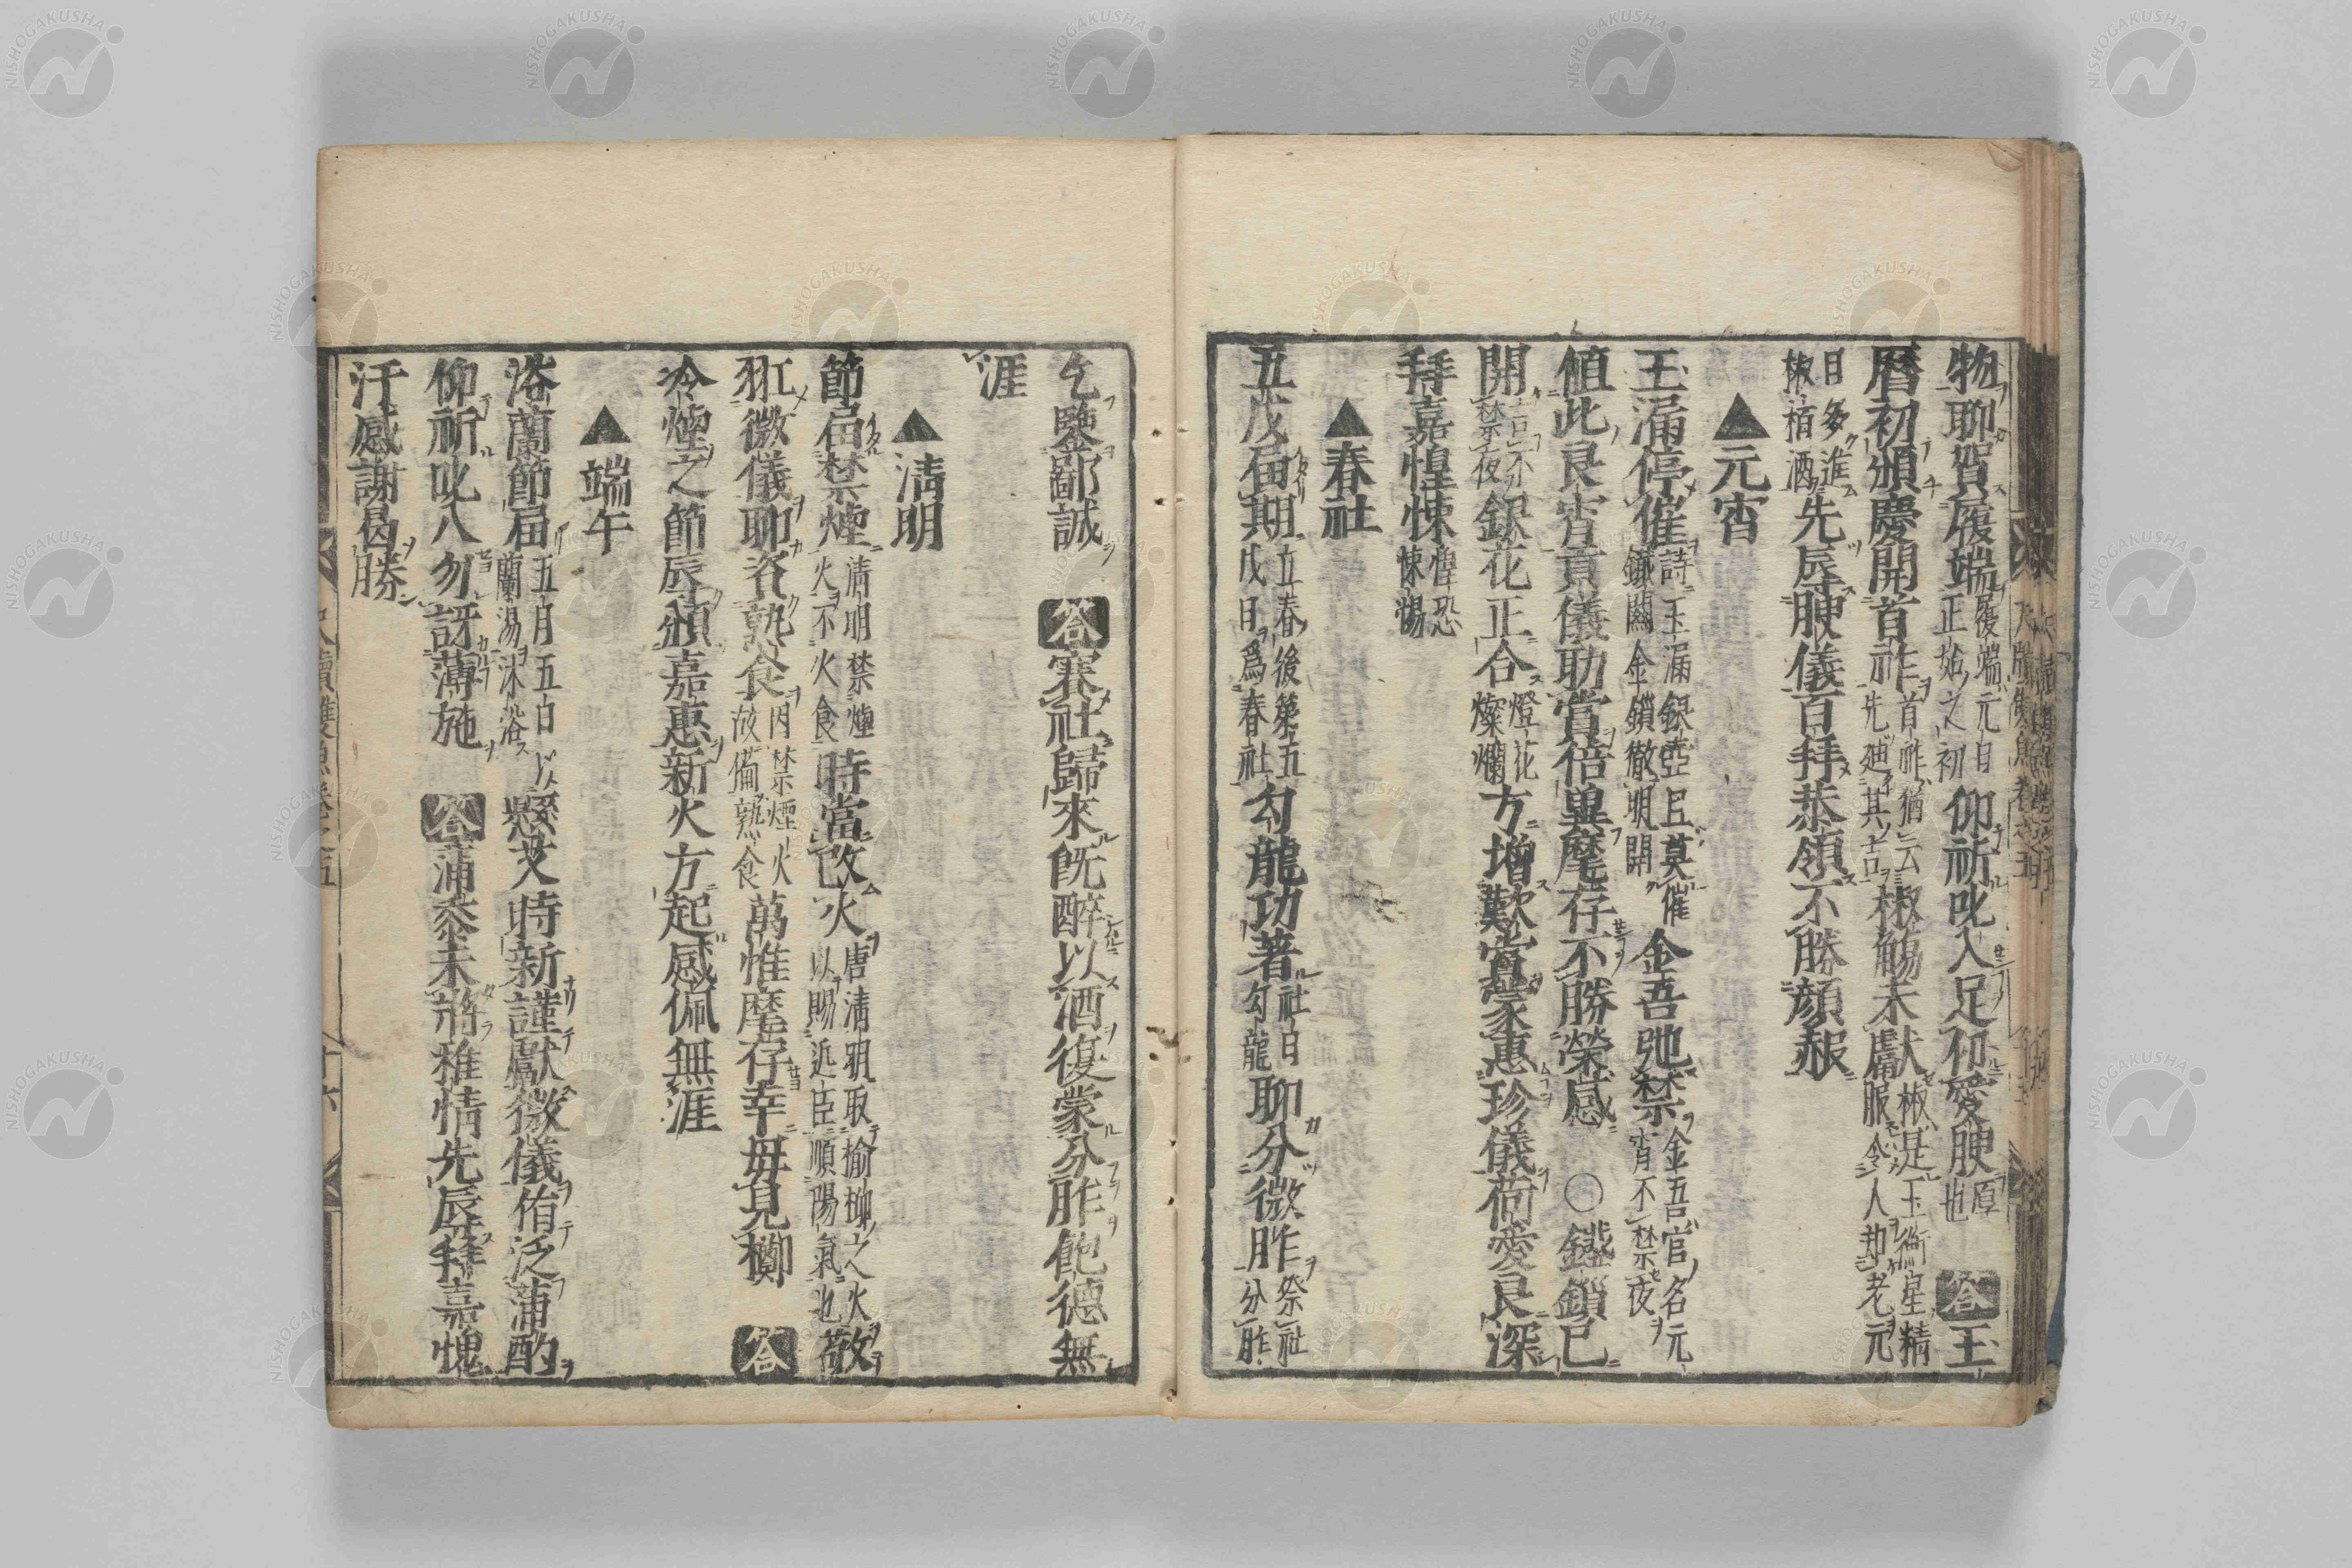 物聊賀履端履端元日正始之初仰祈叱入足仞愛腴厚也答玉
暦初頒慶開首祚首祚猶云先廼其吉椒觴未獻椒是玉衡星精服令人却老元
日多進椒栢酒先辱腴儀百拜恭領不勝顔赧
▲元宵
玉漏停催詩玉漏銀壺且莫催鐵關金鎖徹明開金吾弛禁金吾官名元宵不禁夜
値此良宵貢儀助賞倍異麾存不勝榮感○鐵鎖已
開言不禁夜銀花正合燈花燦爛方增歡賞蒙惠珍儀荷愛良深
拜嘉惶悚惶恐悚惕
▲春社
五戊届期立春後第五戊日爲春社勾龍功著社日勾龍聊分微胙祭社分胙
乞鑒鄙誠答賽社歸來既醉以酒復蒙分胙飽德無
涯
▲清明
節届禁煙清明禁煙火不火食時當改火唐清明取榆柳之火以賜近臣順陽氣也敬
具微儀聊咨熟食因禁煙火故備熟食萬惟麾存幸毋見擲答
冷煙之節辱頒嘉惠新火方起感佩無涯
▲端午
浴蘭節届五月五日以蘭湯沐浴懸艾時新謹獻微儀侑泛蒲酌
仰祈叱入勿訝薄施答蒲黍未將雅情先辱拜嘉愧
汗感謝曷勝
尺牘雙魚卷之五
十六
NISHOGAKUSHA